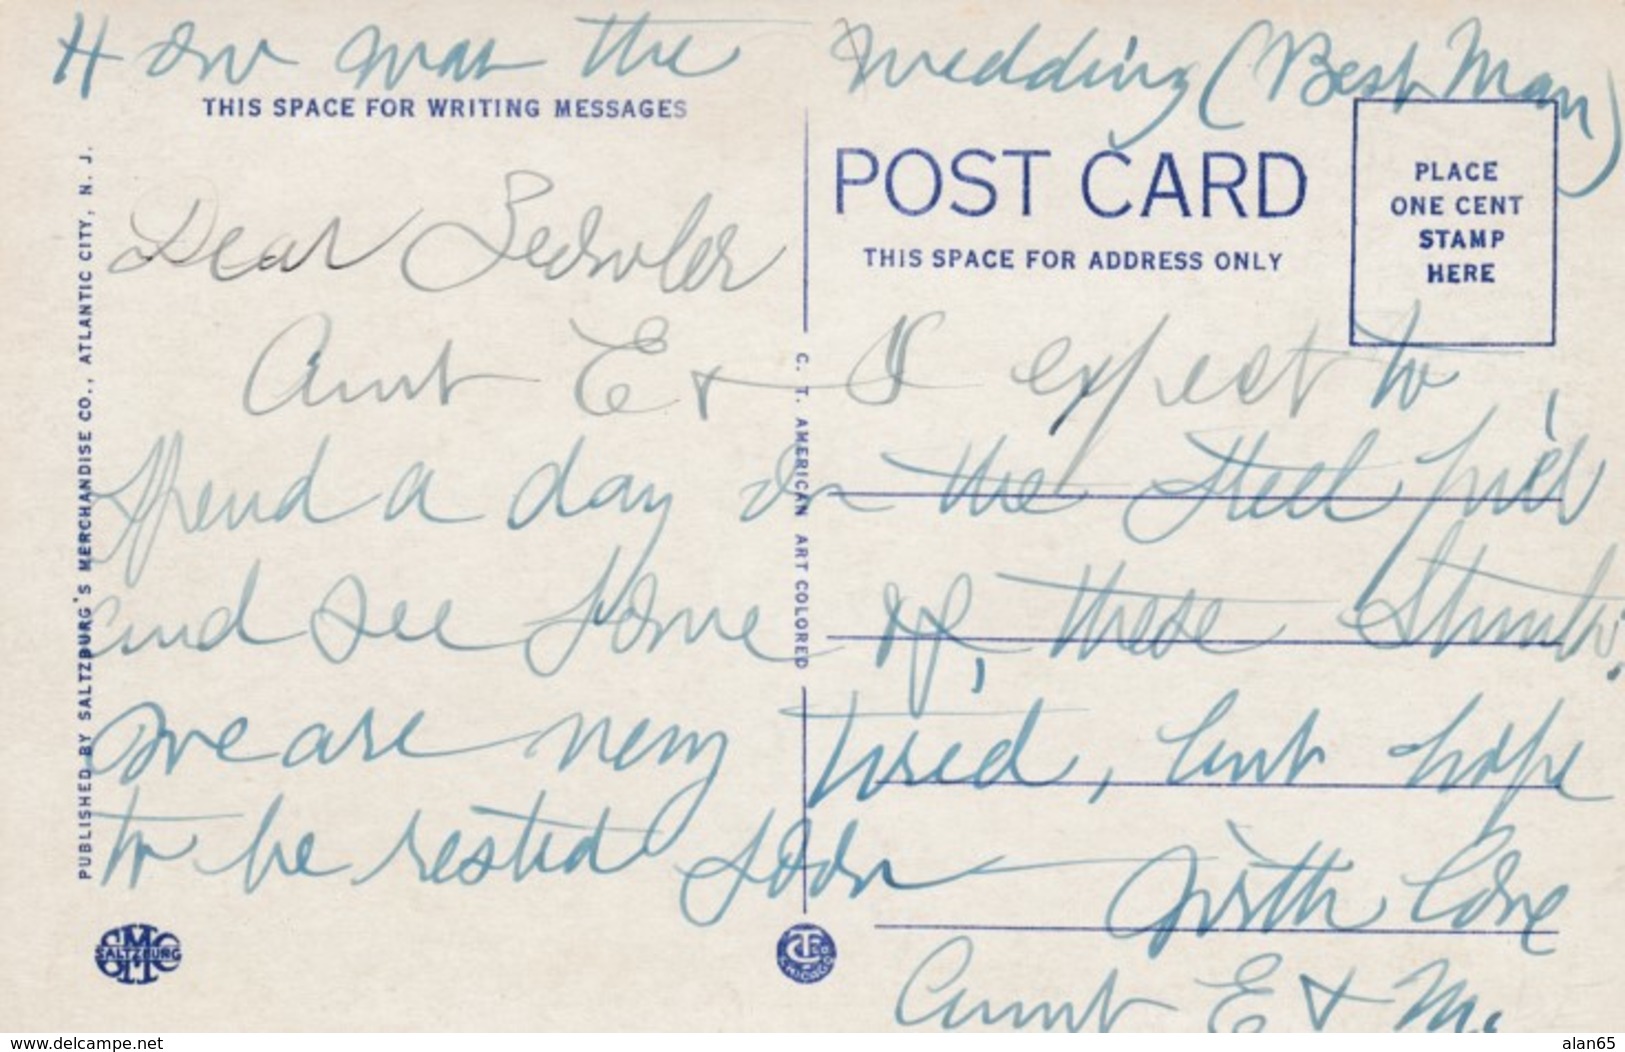 How was the Wedding (Best Man)
THIS SPACE FOR WRITING MESSAGES
POST CARD
THIS SPACE FOR ADDRESS ONLY
PLACE
ONE CENT
STAMP
HERE
Dear
Aunt E + I expect to
spend a day on the Steel pier
and see some of, these stunts.
We are very tired, but hope
to be rested soon — With Love
Aunt E + M.
PUBLISHED BY SALTZBURG'S MERCHANDISE CO., ATLANTIC CITY, N. J.
C. T. AMERICAN ART COLORED
SALTZBURG
CHICAGO
www.delcampe.net
alan65